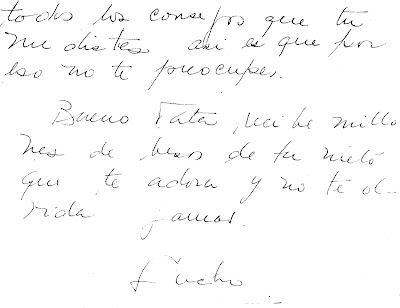 todos los consejos que tu
me distes asi es que por
eso no te preocupes.
Bueno Tata, recibe millo
nes de besos de tu nieto
que te adora y no te ol-
vida jamas.
Lucho